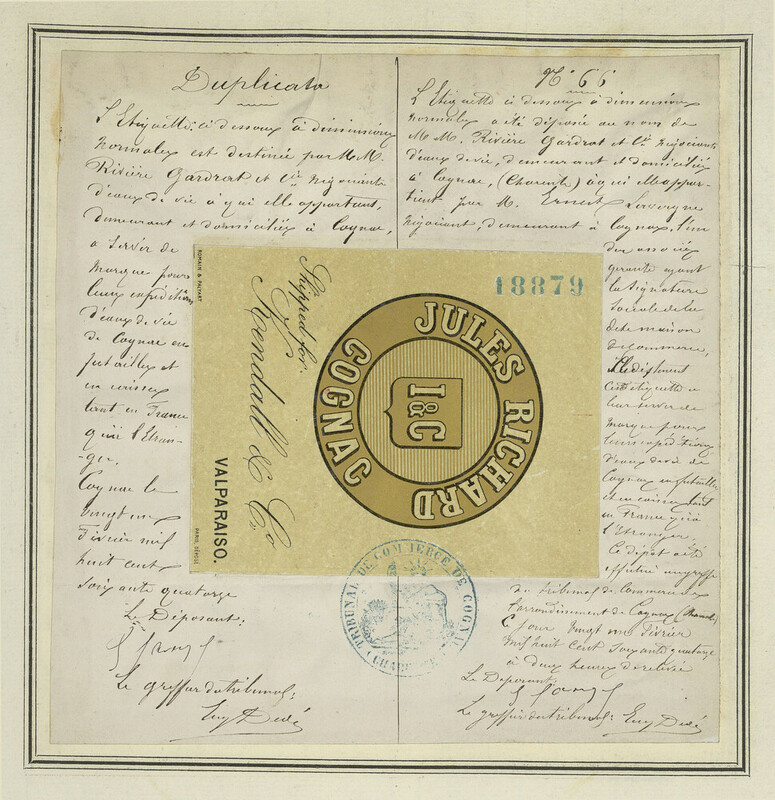 Duplicata
L'Etiquette ci dessous à dimensions
normales est destinée par M.M.
Rivière Gardrat et Cie Négociants
d'eaux de vie à qui elle appartient,
demeurant et domiciliés à Cognac,
à servir de
marque pour
leurs expéditions
d'eaux de vie
de Cognac en
futailles et
en caisses
tant en France
qu'à l'Etran-
-ger.
Cognac le
vingt un
Février mil
huit cent
soixante quatorze
Le Déposant:
Le greffier du tribunal:
N° 66
L'Etiquette ci dessous à dimensions
normales a été déposée au nom de
M.M. Rivière Gardrat et Cie Négociants
d'eaux de vie, demeurant et domiciliés
à Cognac, (Charente) à qui elle appar-
tient par M. Ernest Lavergne
Négociant, demeurant à Cognac, l'un
des associés
gérants ayant
la signature
sociale de la
dite maison
de commerce,
Ils destinent
cette étiquette à
leur servir de
marque pour
leurs expéditions
d'eaux de vie de
Cognac en futailles
et en caisses tant
en France qu'à
l'Etranger.
Ce dépôt a été
effectué au greffe
du tribunal de Commerce de
l'arrondissement de Cognac (Charente)
Ce jour vingt un Février
mil huit cent soixante quatorze
à deux heures de relevée
Le Déposant:
Le greffier du tribunal:
ROMAIN & PALYART
Shipped for
Kendall & Co
VALPARAISO.
PARIS, DÉPOSÉ
18879
JULES RICHARD
COGNAC
I&C
TRIBUNAL DE COMMERCE DE COGNAC
(CHARENTE)